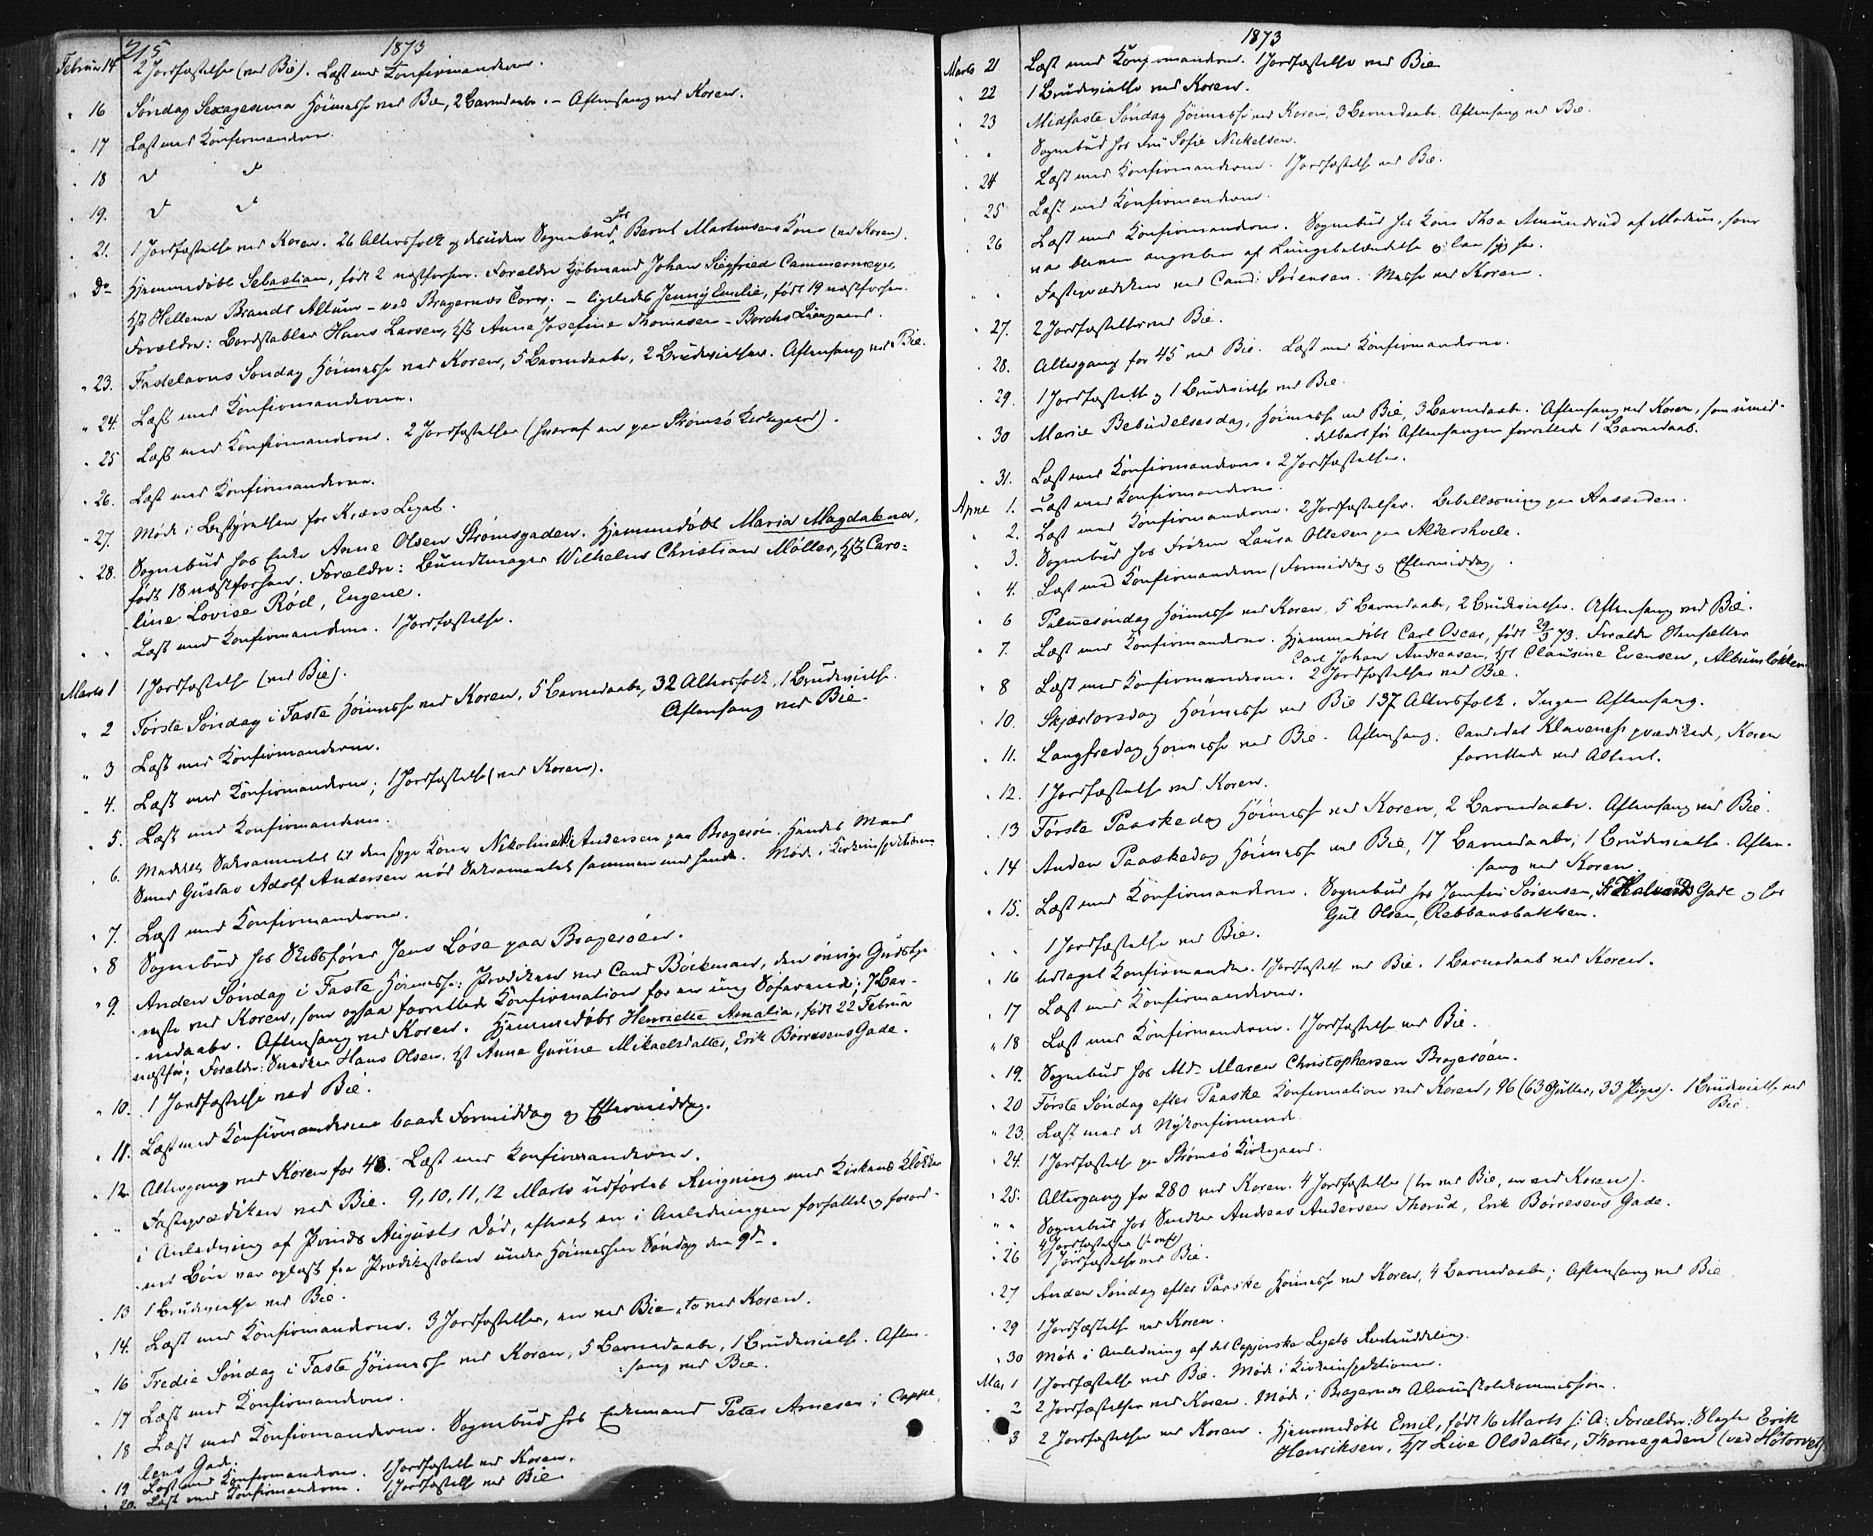 215
1873
Februar 14 2 Jordfæstelser (ved Bie). Læst med Konfirmanderne.
" 16 Søndag Sexagesima Høimesse ved Bie, 2 Barnedaabe. – Aftensang ved Koren.
" 17 Læst med Konfirmanderne.
" 18
" 19.
" 21. 1 Jordfæstelse ved Koren. 26 Altersfolk og desuden Sognebud hos Bernt Martinsens Kone (ved Koren).
" Do Hjemmedøbt Sebastian, født 2 næstforhen. Forældre Kjøbmand Johan Siegfried Cammermeyer,
Hst Hellena Brandt Altum – ved Bragernæs Torv; – ligeledes Jenny Emilie, født 19 næstforhen.
Forældre: Bordstabler Hans Larsen, Hst Anna Josefine Thomasen – Borchs
" 23. Fastelavns Søndag Høimesse ved Koren, 5 Barnedaabe, 2 Brudevielser. Aftensang ved Bie.
" 24. Læst med Konfirmanderne.
" 25 Læst med Konfirmanderne. 2 Jordfæstelser (hvoraf en paa Strømsø Kirkegaard).
" 26. Læst med Konfirmanderne.
" 27. Møde i Bestyrelsen for Kiærs Legat.
" 28. Sognebud hos Enke Anne Olsen Strømsgaden. Hjemmedøbt Maria Magdalena,
født 18 næstforhen. Forældre: Bundtmager Wilhelm Christian Møller, Hst Caro-
line Lovise Rød, Engene.
" " Læst med Konfirmanderne. 1 Jordfæstelse.
Marts 1 1 Jordfæstelse (ved Bie).
" 2 Første Søndag i Faste Høimesse ved Koren, 5 Barnedaabe, 32 Altersfolk, 1 Brudevielse.
Aftensang ved Bie.
" 3 Læst med Konfirmanderne.
" 4. Læst med Konfirmanderne; 1 Jordfæstelse (ved Koren).
" 5. Læst med Konfirmanderne.
" 6. Meddelt Sakramentet til den syge Kone Nikoline Andersen paa Bragerøen. Hendes Mand
Smed Gustav Adolf Andersen nød Sakramentet sammen med hende. Møde i Kirkeinspektionen
" 7. Læst med Konfirmanderne.
" 8 Sognebud hos Skibsfører Jens Løse paa Bragerøen.
" 9. Anden Søndag i Faste Høimesse: Prædiken ved Cand Bøckman, den øvrige Gudstje-
neste ved Koren, som ogsaa forrettede Konfirmation for en ung Søfarende; 7 Bar-
nedaabe. Aftensang ved Koren. Hjemmedøbt Henriette Amalia, født 22 Februar
næstfør; Forældre: Snedker Hans Olsen, Hst Anna Gurine Mikaelsdatter, Erik Børresens Gade.
" 10. 1 Jordfæstelse ved Bie.
" 11. Læst med Konfirmanderne baade Formiddag og Eftermiddag.
" 12 Altergang ved Koren for 48. Læst med Konfirmanderne.
" Fasteprædiken ved Bie. 9, 10, 11, 12 Marts udførtes Ringning med Kirkens Klokker
i Anledning af Prinds Augusts Død, efterat en i Anledningen forfattet og forord-
net Bøn var oplæst fra Prædikestolen under Høimessen Søndag den 9de.
" 13 1 Brudevielse ved Bie.
" 14. Læst med Konfirmanderne. 3 Jordfæstelser, en ved Bie, to ved Koren.
" 16 Tredie Søndag i Faste Høimesse ved Koren, 5 Barnedaabe, 1 Brudevielse. Aften-
sang ved Bie.
" 17 Læst med Konfirmanderne.
" 18 Læst med Konfirmanderne. Sognebud hos Enkemand Peter Arnesen i Cappe-
lens Gade.
" 19 Læst med Konfirmanderne. 1 Jordfæstelse ved Koren.
" 20. Læst med Konfirmanderne. 1 Jordfæstelse ved Bie.
1873
Marts 21 Læst med Konfirmanderne. 1 Jordfæstelse ved Bie
" 22 1 Brudevielse ved Koren.
" 23 Midfaste Søndag Høimesse ved Koren, 3 Barnedaabe. Aftensang ved Bie.
" Sognebud hos Fru Sofie Nickelsen.
" 24 Læst med Konfirmanderne. 1 Jordfæstelse ved Bie.
" 25 Læst med Konfirmanderne.
" 26 Læst med Konfirmanderne. Sognebud hos Kone Thea Amundrud af Modum, som
var bleven angreben af Lungebetændelse og laa syg her.
" " Fasteprædiken ved Cand: Sørensen. Messe ved Koren.
" 27. 2 Jordfæstelser ved Bie.
" 28. Altergang for 45 ved Bie. Læst med Konfirmanderne.
" 29. 1 Jordfæstelse og 1 Brudevielse ved Bie.
" 30 Mariæ Bebudelsesdag, Høimesse ved Bie, 3 Barnedaabe. Aftensang ved Koren, som umid-
delbart før Aftensangen forrettede 1 Barnedaab.
" 31. Læst med Konfirmanderne. 2 Jordfæstelser.
April 1. Læst med Konfirmanderne.
" 2. Læst med Konfirmanderne. 2 Jordfæstelser. Bibellæsning paa Aassiden.
" 3. Sognebud hos Frøken Laura Ottesen paa Aldershvile.
" 4. Læst med Konfirmanderne (Formiddag og Eftermiddag).
" 6 Palmesøndag Høimesse ved Koren, 5 Barnedaabe, 2 Brudevielser. Aftensang ved Bie.
" 7. Læst med Konfirmanderne. Hjemmedøbt Carl Oscar, født 29/3 73. Forældre Stensætter
Carl Johan Andreasen, Hst Clausine Evensen, Albumsløkken
" 8 Læst med Konfirmanderne. 2 Jordfæstelser ved Bie.
" 10. Skjærtorsdag Høimesse ved Bie 137 Altersfolk. Ingen Aftensang.
" 11. Langfredag Høimesse ved Bie. Aftensang. Candidat Klaveness prædikede, Koren
forrettede ved Alteret.
" 12. 1 Jordfæstelse ved Koren.
" 13 Første Paaskedag Høimesse ved Koren, 2 Barnedaabe. Aftensang ved Bie.
" 14 Anden Paaskedag Høimesse ved Bie, 17 Barnedaabe; 1 Brudevielse. Aften-
sang ved Koren
" 15. Læst med Konfirmanderne. Sognebud hos Jomfru Sørensen, St Halvards Gade og hos
Gul Olsen, Rebbansbakken.
" " 1 Jordfæstelse ved Bie.
" 16 Udtaget Konfirmander. 1 Jordfæstelse ved Bie. 1 Barnedaab ved Koren.
" 17 Læst med Konfirmanderne.
" 18 Læst med Konfirmanderne. 1 Jordfæstelse ved Bie.
" 19. Sognebud hos Md. Maren Christophersen Bragerøen.
" 20 Første Søndag efter Paaske Konfirmation ved Koren, 96 (63 Gutter, 33 Piger). 1 Brudevielse ved
Bie.
" 23. Læst med de Nykonfirmerede.
" 24. 1 Jordfæstelse paa Strømsø Kirkegaard.
" 25. Altergang for 280 ved Koren. 4 Jordfæstelser (tre ved Bie, en ved Koren).
" " Sognebud hos Snedker Andreas Andersen Thorud, Erik Børresens Gade.
4 Jordfæstelser
" 26 1 Jordfæstelse ved Bie.
" 27 Anden Søndag efter Paaske Høimesse ved Koren, 4 Barnedaabe; Aftensang ved Bie
" 29 1 Jordfæstelse ved Koren.
" 30 Møde i Anledning af det Cappenske Legats Renteuddeling.
Mai 1 1 Jordfæstelse ved Bie. Møde i Kirkeinspektionen.
" 2 2 Jordfæstelser ved Koren. Møde i Bragernæs Almueskolekommission.
" 3 2 Jordfæstelser ved Koren. Hjemmedøbt Emil, født 16 Marts s: A: Forældre: Slagter Erik
Henriksen, Hst Live Olsdatter, Thornegaden (ved Høtorvet)